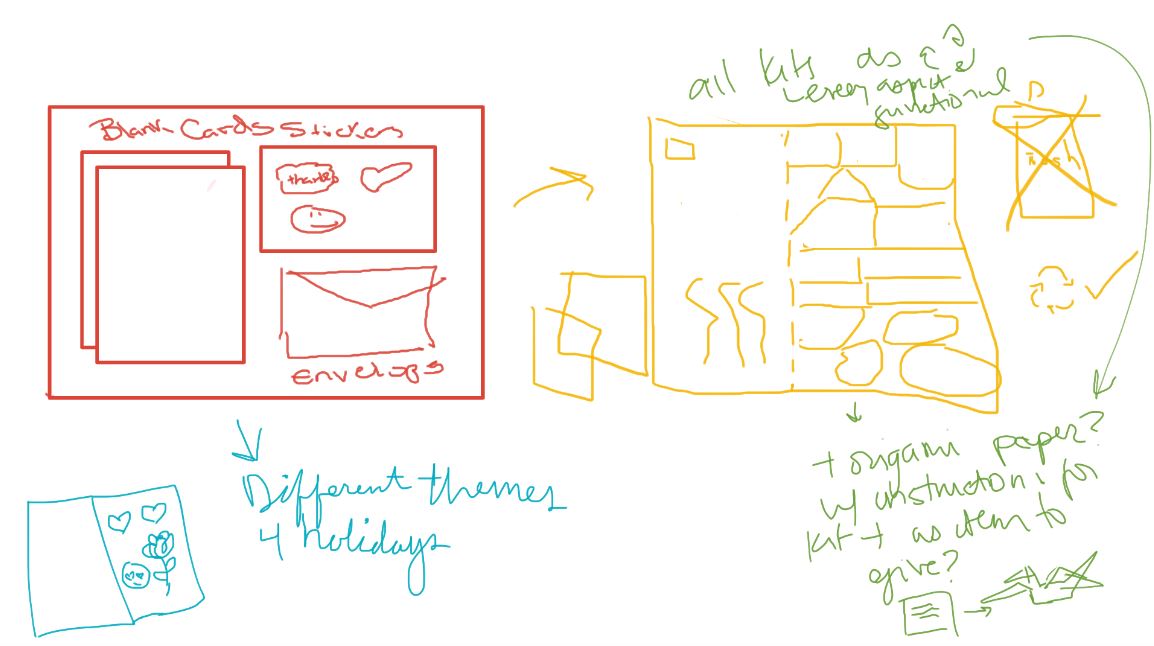 Blank Cards Stickers
thanks
Envelops
Different themes
4 holidays
all kits as
every aspect
functional
Trash
+ origami paper?
w/ instructions for
kit + as item to
give?